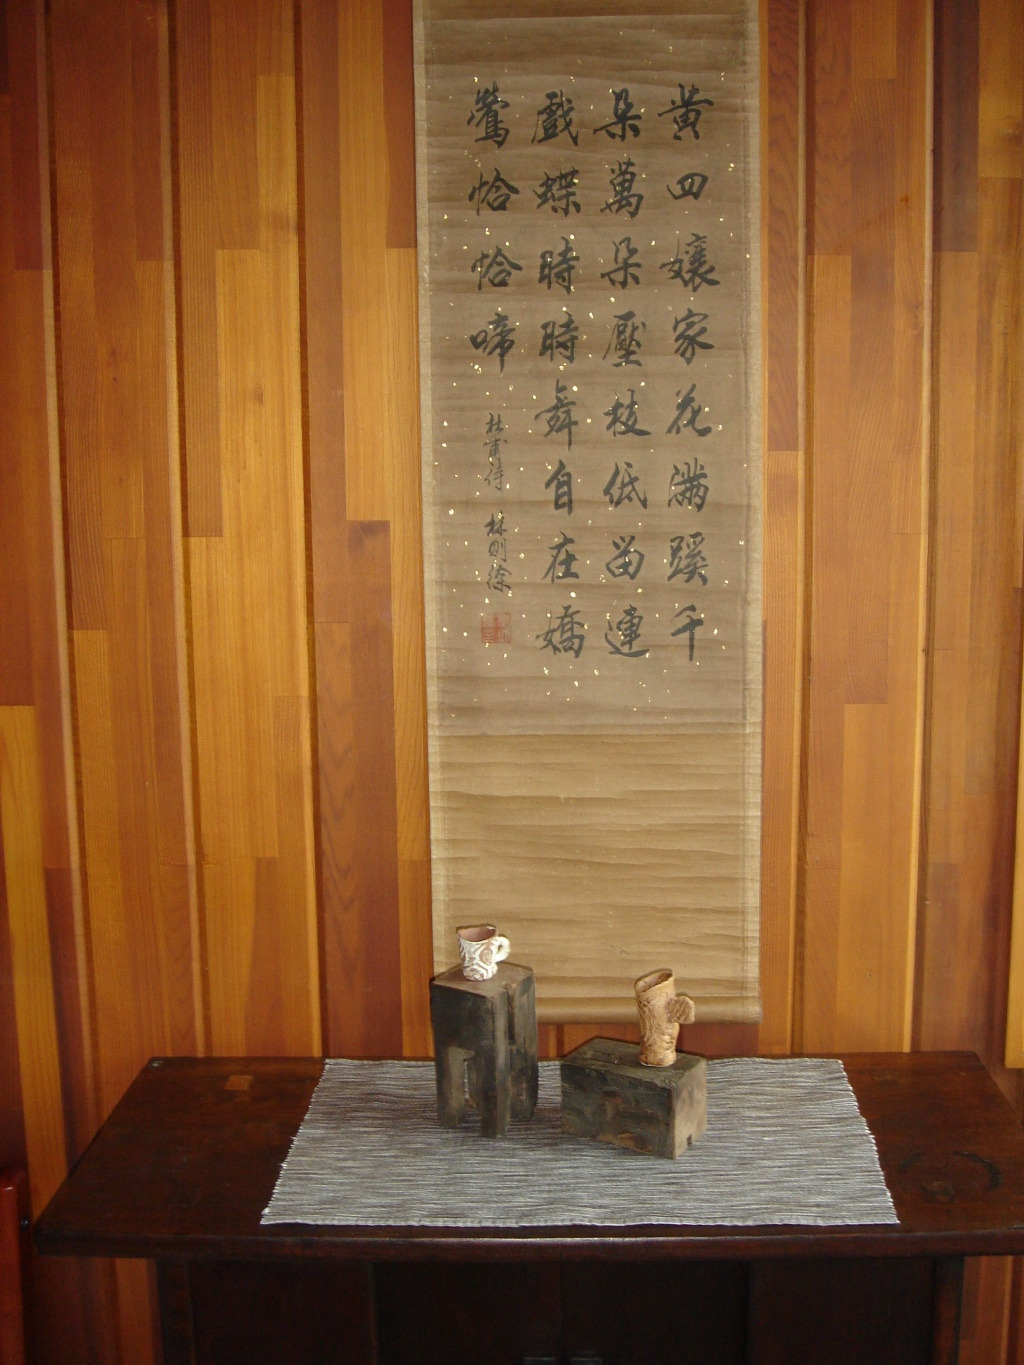 黄四孃家花滿蹊千
朵萬朵壓枝低留連
戲蝶時時舞自在嬌
鶯恰恰啼
杜甫詩 林則徐